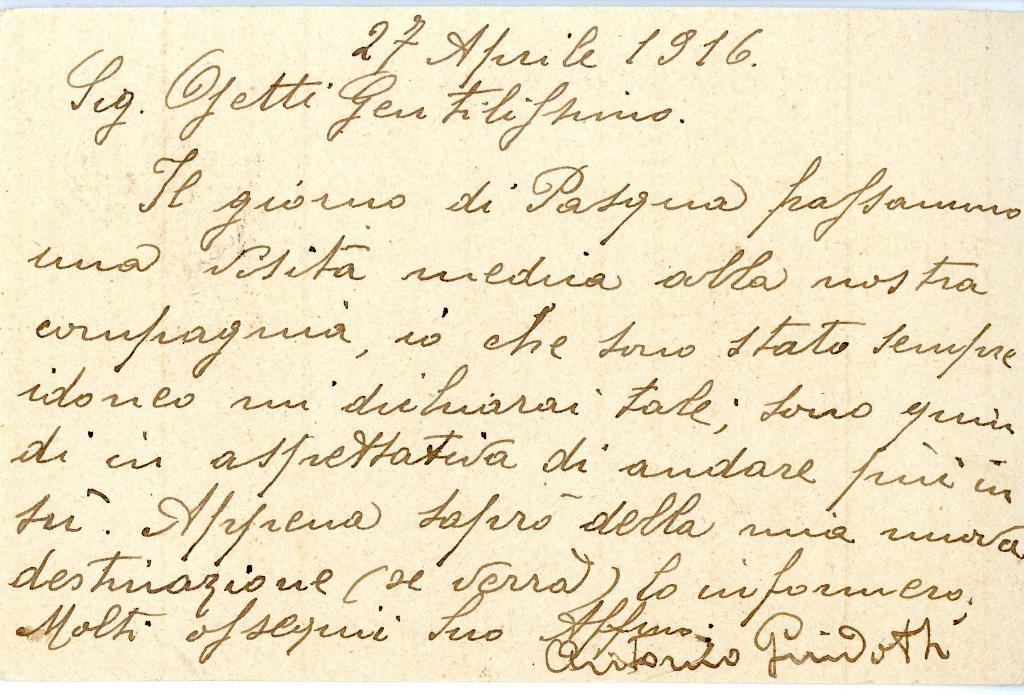 27 Aprile 1916.
Sig. Ojetti Gentilissimo.
Il giorno di Pasqua passammo
una visita medica alla nostra
compagnia, io che sono stato sempre
idoneo mi dichiarai tale; sono quin
di in aspettativa di andare più in
sù. Appena saprò della mia nuova
destinazione (se verrà) lo informerò.
Molti ossequi Suo Affmo.
Antonio Guidotti